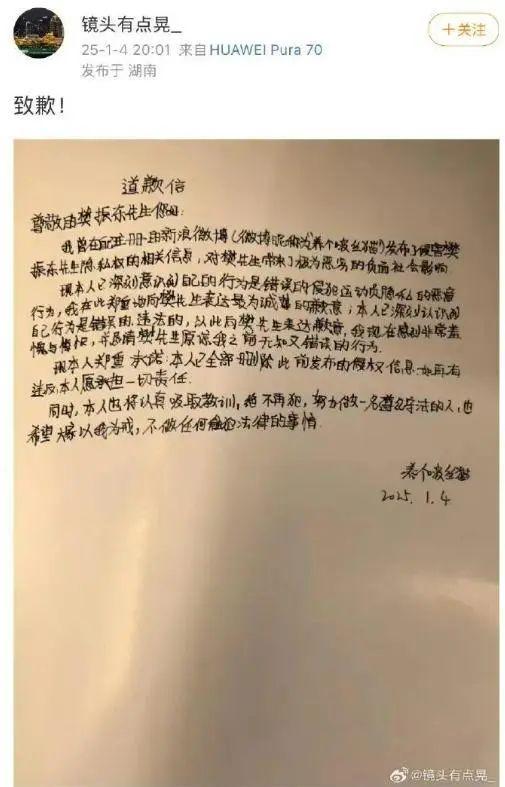 镜头有点晃_
+关注
25-1-4 20:01 来自 HUAWEI Pura 70
发布于 湖南
致歉！
道歉信
尊敬的樊振东先生你好：
我曾在配注册的新浪微博(微博昵称为养个波丝猫)发布了侵害樊
振东先生隐私权的相关信息，对樊先生带来了极为恶劣的负面社会影响.
现本人已深刻意识到自己的行为是错误的侵犯运动员隐私的恶意
行为，我在此郑重地向樊先生表达最为诚挚的歉意；本人已深刻认识到
自己行为是错误的、违法的，以此向樊先生表达歉意，我现在感到非常羞
愧与悔恨，并恳请樊先生原谅我之前无知又错误的行为.
现本人郑重承诺：本人已全部删除此前发布的侵权信息.如再有
违反，本人愿承担一切责任.
同时，本人也将认真吸取教训，绝不再犯，努力做一名遵纪守法的人，也
希望大家以我为戒，不做任何触犯法律的事情.
养个波丝猫
2025.1.4
@镜头有点晃_